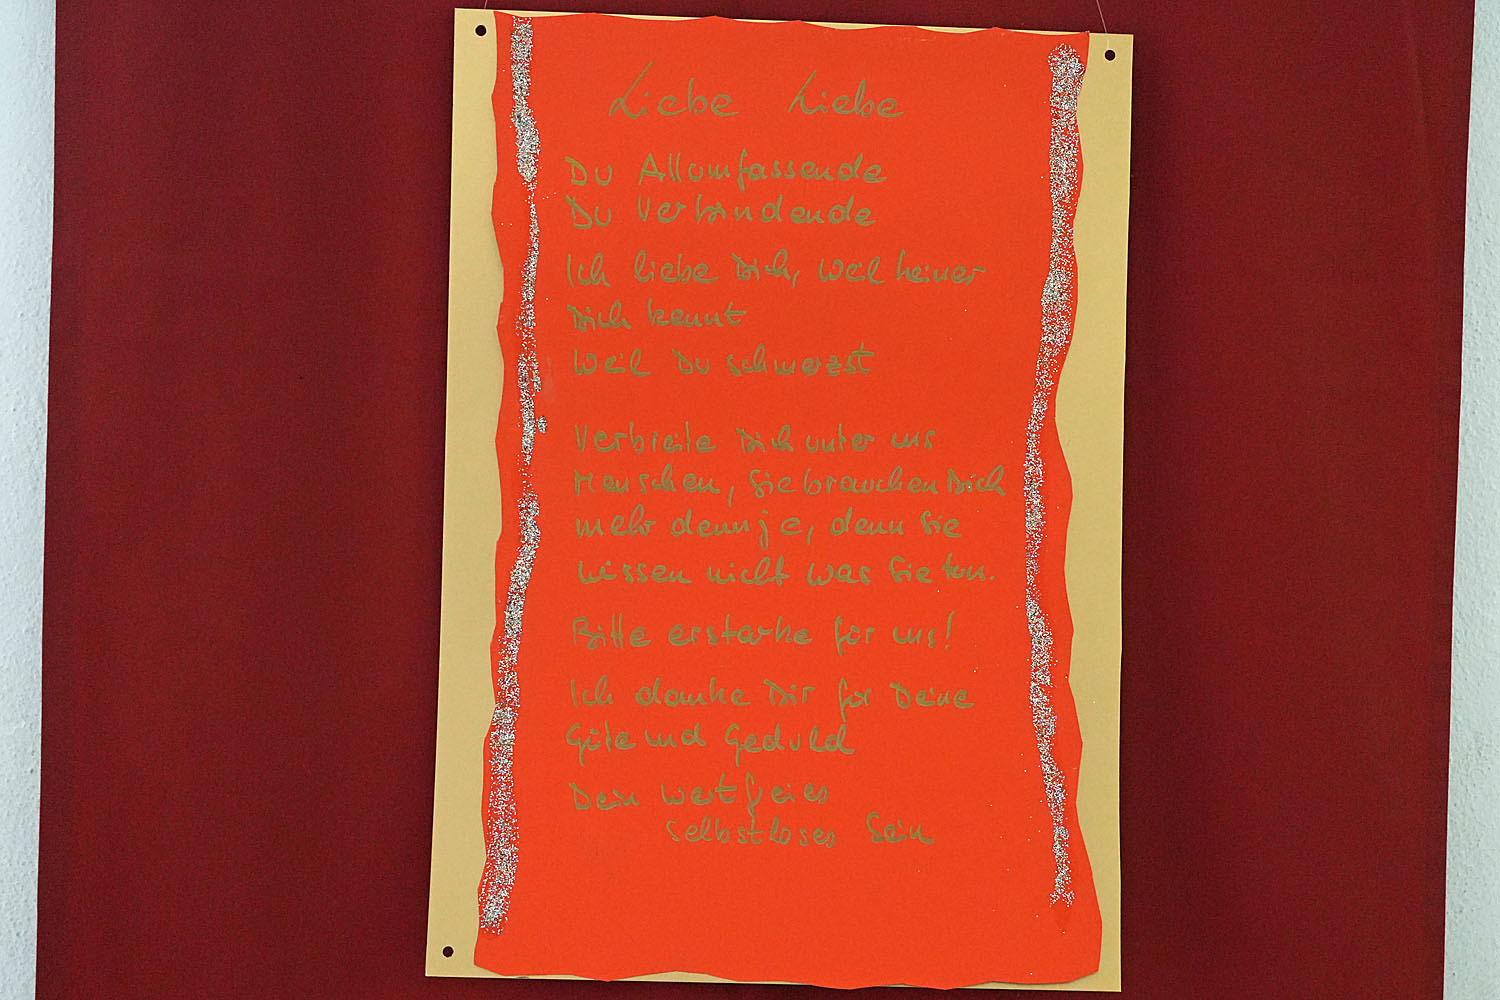 Liebe Liebe
Du Allumfassende
Du Verbindende
Ich liebe Dich, weil keiner
Dich kennt
Weil Du schmerzst
Verbreite Dich unter uns
Menschen, Sie brauchen Dich
mehr denn je, denn Sie
wissen nicht was Sie tun.
Bitte erstarke für uns!
Ich danke Dir für Deine
Güte und Geduld
Dein wertfreies
selbstloses Sein